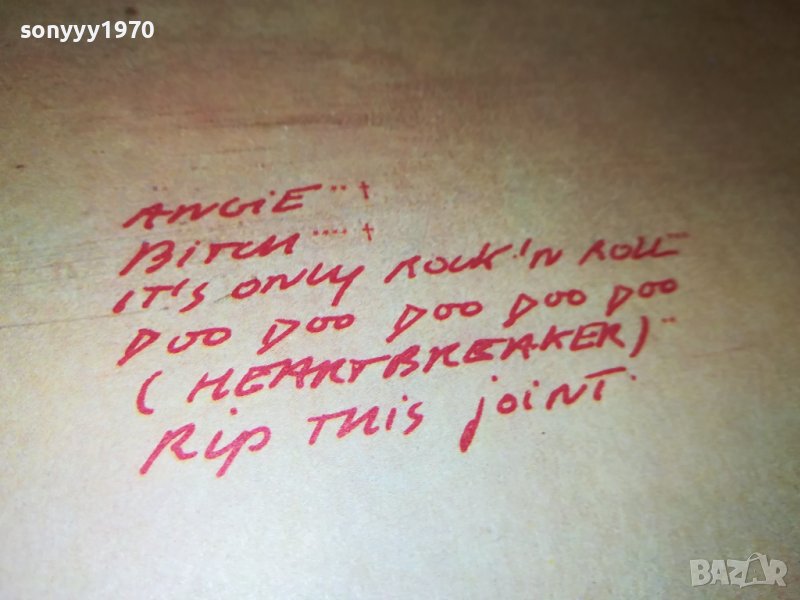 sonyyy1970
ANGIE
BITCH
IT'S ONLY ROCK'N ROLL
DOO DOO DOO DOO DOO
(HEARTBREAKER)
RIP THIS JOINT.
BAZAR